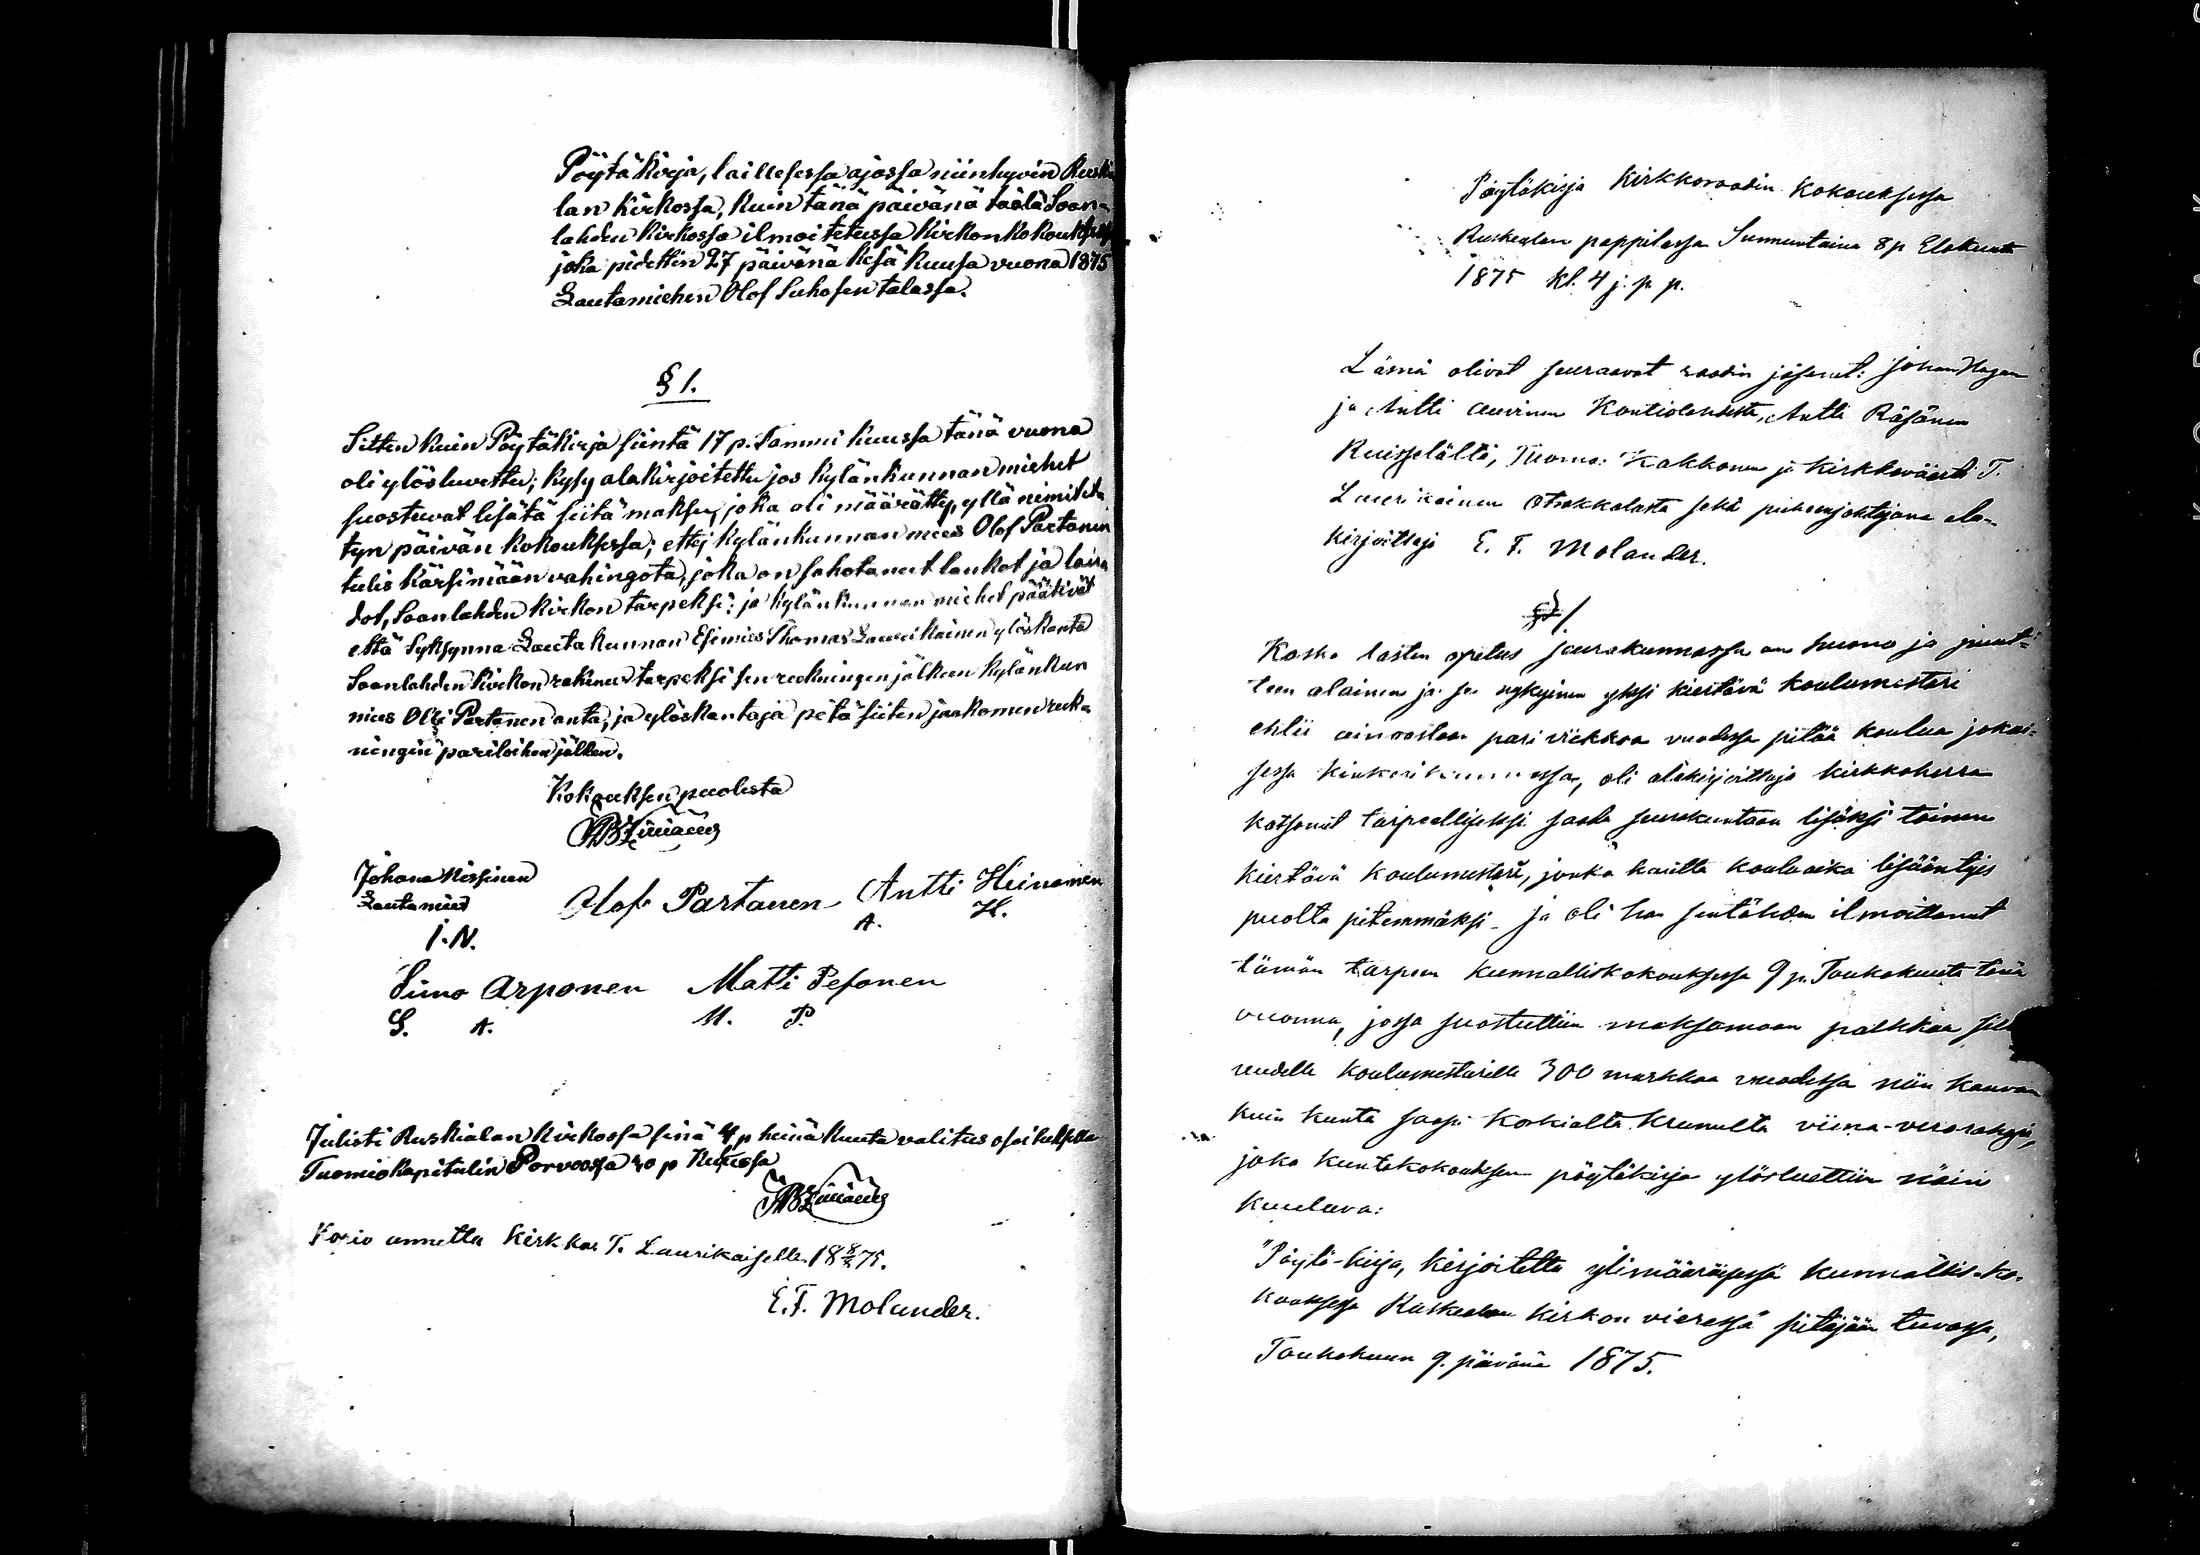 Pöytäkirja, laillisessa ajassa niinhyvin Ruskia
lan kirkossa, kuin tänä päivänä täälä Soan-
lahden kirkossa ilmoitetussa kirkonkokouksessa
joka pidettin 27 päivänä kesä kuusa vuona 1875
Lautamiehen Olof Suhosen talassa.
§ 1.
Sitten kuin Pöytäkirja siintä 17 p. Tammi kuussa tänä vuona
oli ylösluvettu; kysy alakirjoitettu jos kylänkunnan miehet
suostuvat lisätä siitä maksu, joka oli määrätty, yllä nimitetu
tyn päivän kokouksessa; ettej kylänkunnan mies Olof Partanen
tulis kärsimään vahingota, joka on sahotanut laukot ja lau
dot, Soanlahden kirkon tarpeksi; ja kylänkunnan miehet päätivät
että Syksynna Lautakunnan Esimies Thomas Laurikainen ylöskanta
Soanlahden kirkon rahinus tarpeksi sen reckningin jälkeen kylänkun
nies Olli Partanen anta, ja ylöskantaja pitä siiten jaakomen reck-
ningin pariloihen jälken.
Kokouksen puolesta
Johana Nissinen
Lautamies
I. N.
Olof Partanen Antti Heinonen
A. H.
Simo Arponen Matti Pesonen
S. A. M. P.
Julisti Ruskialan kirkossa sinä 4 p heinäkuuta valitus osoituksella
Tuomiokapitulin Porvoossa 30 p kulussa
Kopio annettu kirkkov. T. Laurikaiselle 18 8/8 75.
E. F. Molander.
Pöytäkirja Kirkkoraadin Kokouksessa
Ruskealan pappilassa Sunnuntaina 8 p Elokuuta
1875 kl. 4 j. p. p.
Läsnä olivat seuraavat raadin jäsenet: Johan
ja Antti Auvinen Kontiolahdesta, Antti Räsänen
Ruisselältä, Tuomas Kakkonen ja kirkkoväärt T.
Laurikainen Otrakkalasta sekä puheenjohtajana ala-
kirjoittaja E. F. Molander.
§ 1
Koska lasten opetus seurakunnassa on huono ja puut-
teen alainen ja se nykyinen yksi kiertävä koulumestari
ehtii ainoastaan pari viikkoa vuodessa pitää koulua jokai-
sessa kinkerikunnassa, oli alakirjoittaja kirkkoherra
katsonut tarpeellisekssi saada seurakuntaan lisäksi toinen
kiertävä koulumestari, jonka kautta kouluaika lisääntyis
puolta pitemmäksi – ja oli han sentähden ilmoittanut
tämän tarpeen kunnalliskokouksessa 9 p. Toukokuuta tänä
vuonna, jossa suostuttiin maksamaan palkkaa
uudelle koulumestarille 300 markkaa vuodessa niin kauvan
kuin kunta saapi korkialta kruunulta viina-verorahoja,
joka kuntakokouksen pöytäkirja ylösluettiin näin
kuuluva:
"Pöytä-kirja, kirjoitettu ylimääräisessä kunnallis-ko-
kouksessa Ruskealan kirkon vieressä pitäjään tuvassa,
Toukokuun 9. päivänä 1875.